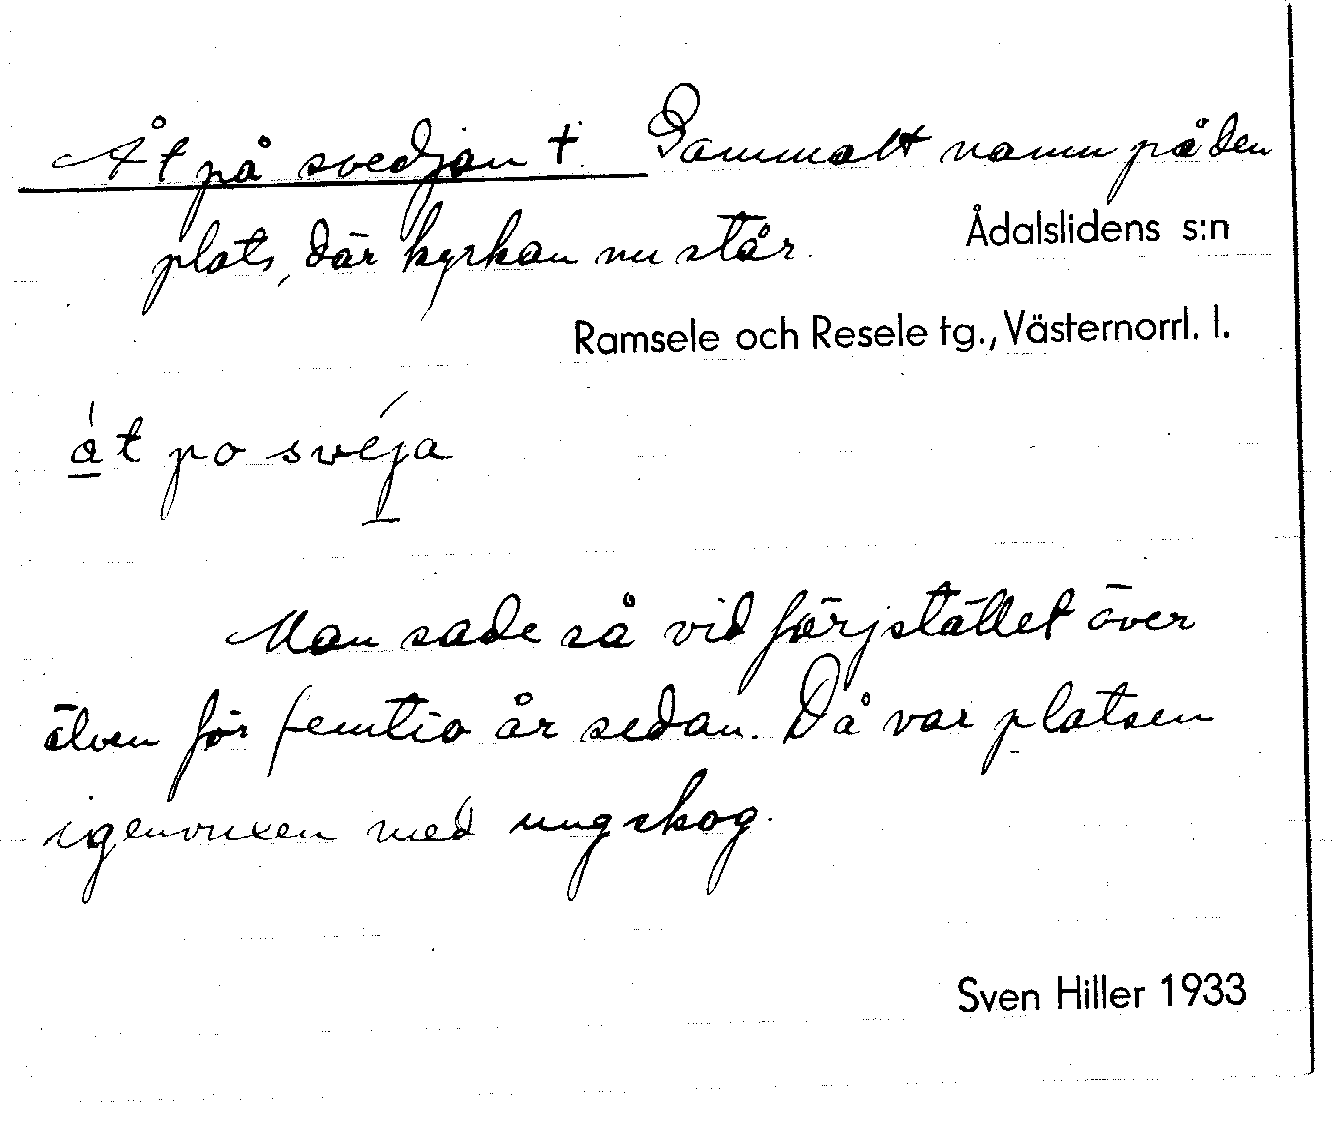 Åt på svedjan †. Gammalt namn på den
plats, där kyrkan nu står.
Ådalslidens s:n
Ramsele och Resele tg., Västernorrl. l.
åt po svéja
Man sade så vid färjstället över
älven för femtio år sedan. Då var platsen
igenvuxen med ungskog.
Sven Hiller 1933